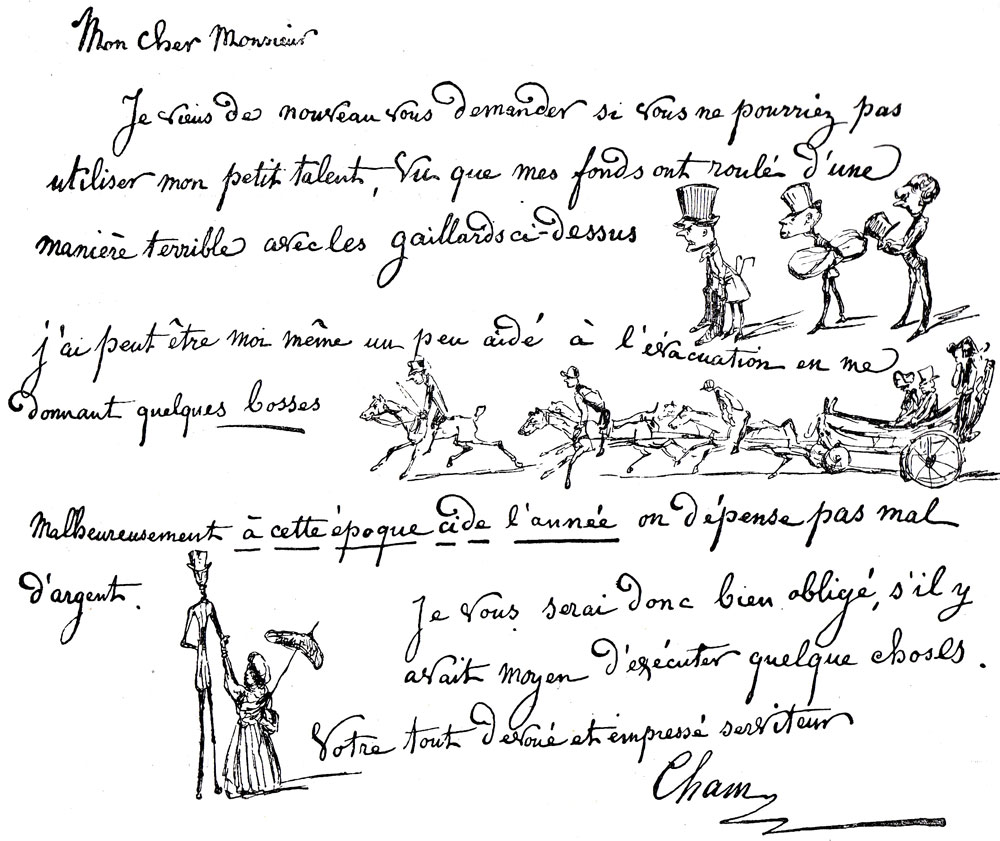 Mon cher Monsieur
Je viens de nouveau vous demander si vous ne pourriez pas
utiliser mon petit talent, Vu que mes fonds ont roulé d'une
manière terrible avec les gaillards ci-dessus
j'ai peut être moi même un peu aidé à l'évacuation en me
donnant quelques bosses
Malheureusement à cette époque ci de l'année on dépense pas mal
d'argent.
Je vous serai donc bien obligé, s'il y
avait moyen d'exécuter quelque choses.
Votre tout dévoué et empressé serviteur
Cham